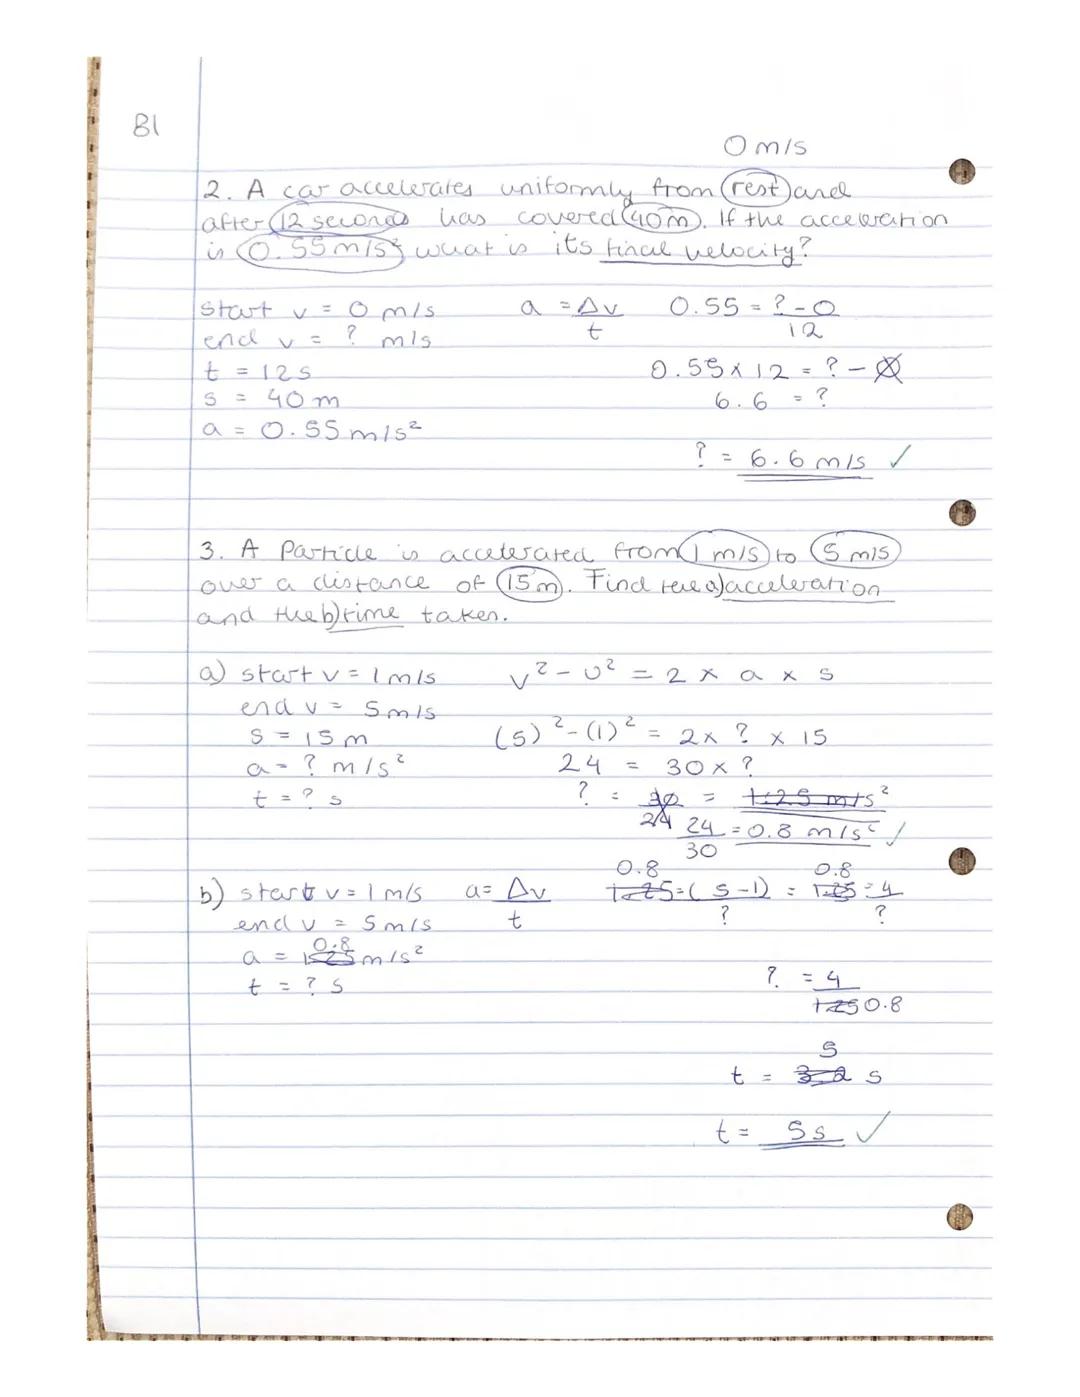 B1
0 m/s
2. A car accelerates uniformly from rest and
after 12 seconds has covered 40m. If the acceleration
is 0.55 m/s² what is its final velocity?
start v = 0 m/s a = Δv/t 0.55 = ?-0/12
end v = ? m/s
t = 12s 0.55 x 12 = ? - 0
s = 40 m 6.6 = ?
a = 0.55 m/s²
? = 6.6 m/s ✓
3. A Particle is accelerated from 1 m/s to 5 m/s
over a distance of 15m. Find the a) acceleration
and the b) time taken.
a) start v = 1 m/s v² - u² = 2 x a x s
end v = 5 m/s
s = 15 m (5)² - (1)² = 2 x ? x 15
a = ? m/s² 24 = 30 x ?
t = ? s ? = 30/24 = 1.25 m/s²
24/30 = 0.8 m/s² ✓
0.8 0.8
b) start v = 1 m/s a = Δv/t 1.25 = (5-1)/? = 1.25 = 4/?
end v = 5 m/s
0.8
a = 1.25 m/s²
t = ? s ? = 4/1.25 0.8
5
t = 3.2 s
t = 5s ✓